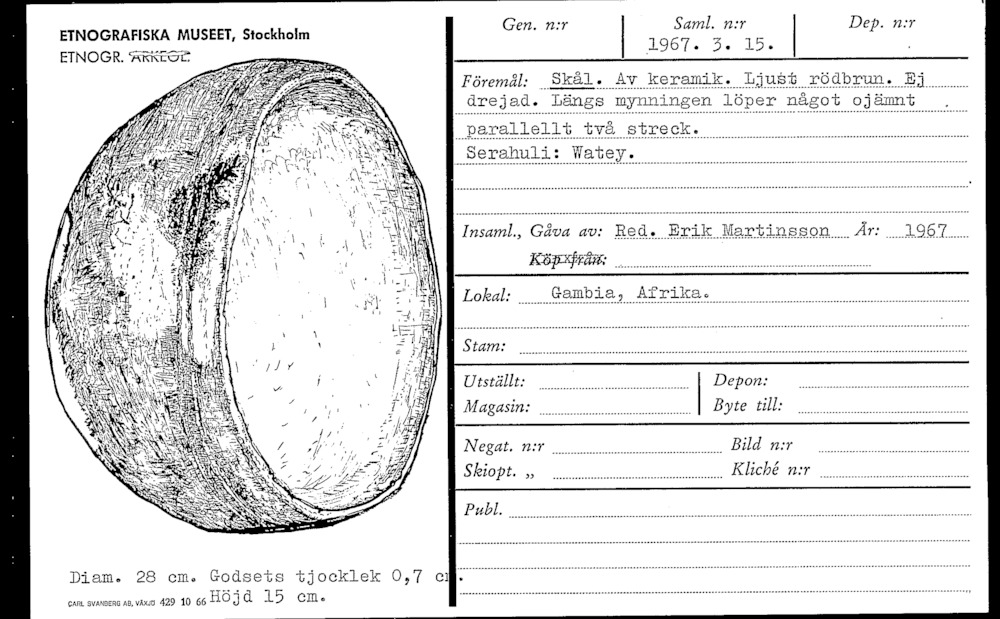 ETNOGRAFISKA MUSEET, Stockholm
ETNOGR. ARKEOL.
Gen. n:r
Saml. n:r
1967. 3. 15.
Dep. n:r
Föremål: Skål. Av keramik. Ljust rödbrun. Ej
drejad. Längs mynningen löper något ojämnt
parallellt två streck.
Serahuli: Watey.
Insaml., Gåva av: Red. Erik Martinsson År: 1967
Köp från:
Lokal: Gambia, Afrika.
Stam:
Utställt:
Depon:
Magasin:
Byte till:
Negat. n:r
Bild n:r
Skiopt. „
Kliché n:r
Publ.
Diam. 28 cm. Godsets tjocklek 0,7 cm.
Höjd 15 cm.
CARL SVANBERG AB, VÄXJÖ 429 10 66